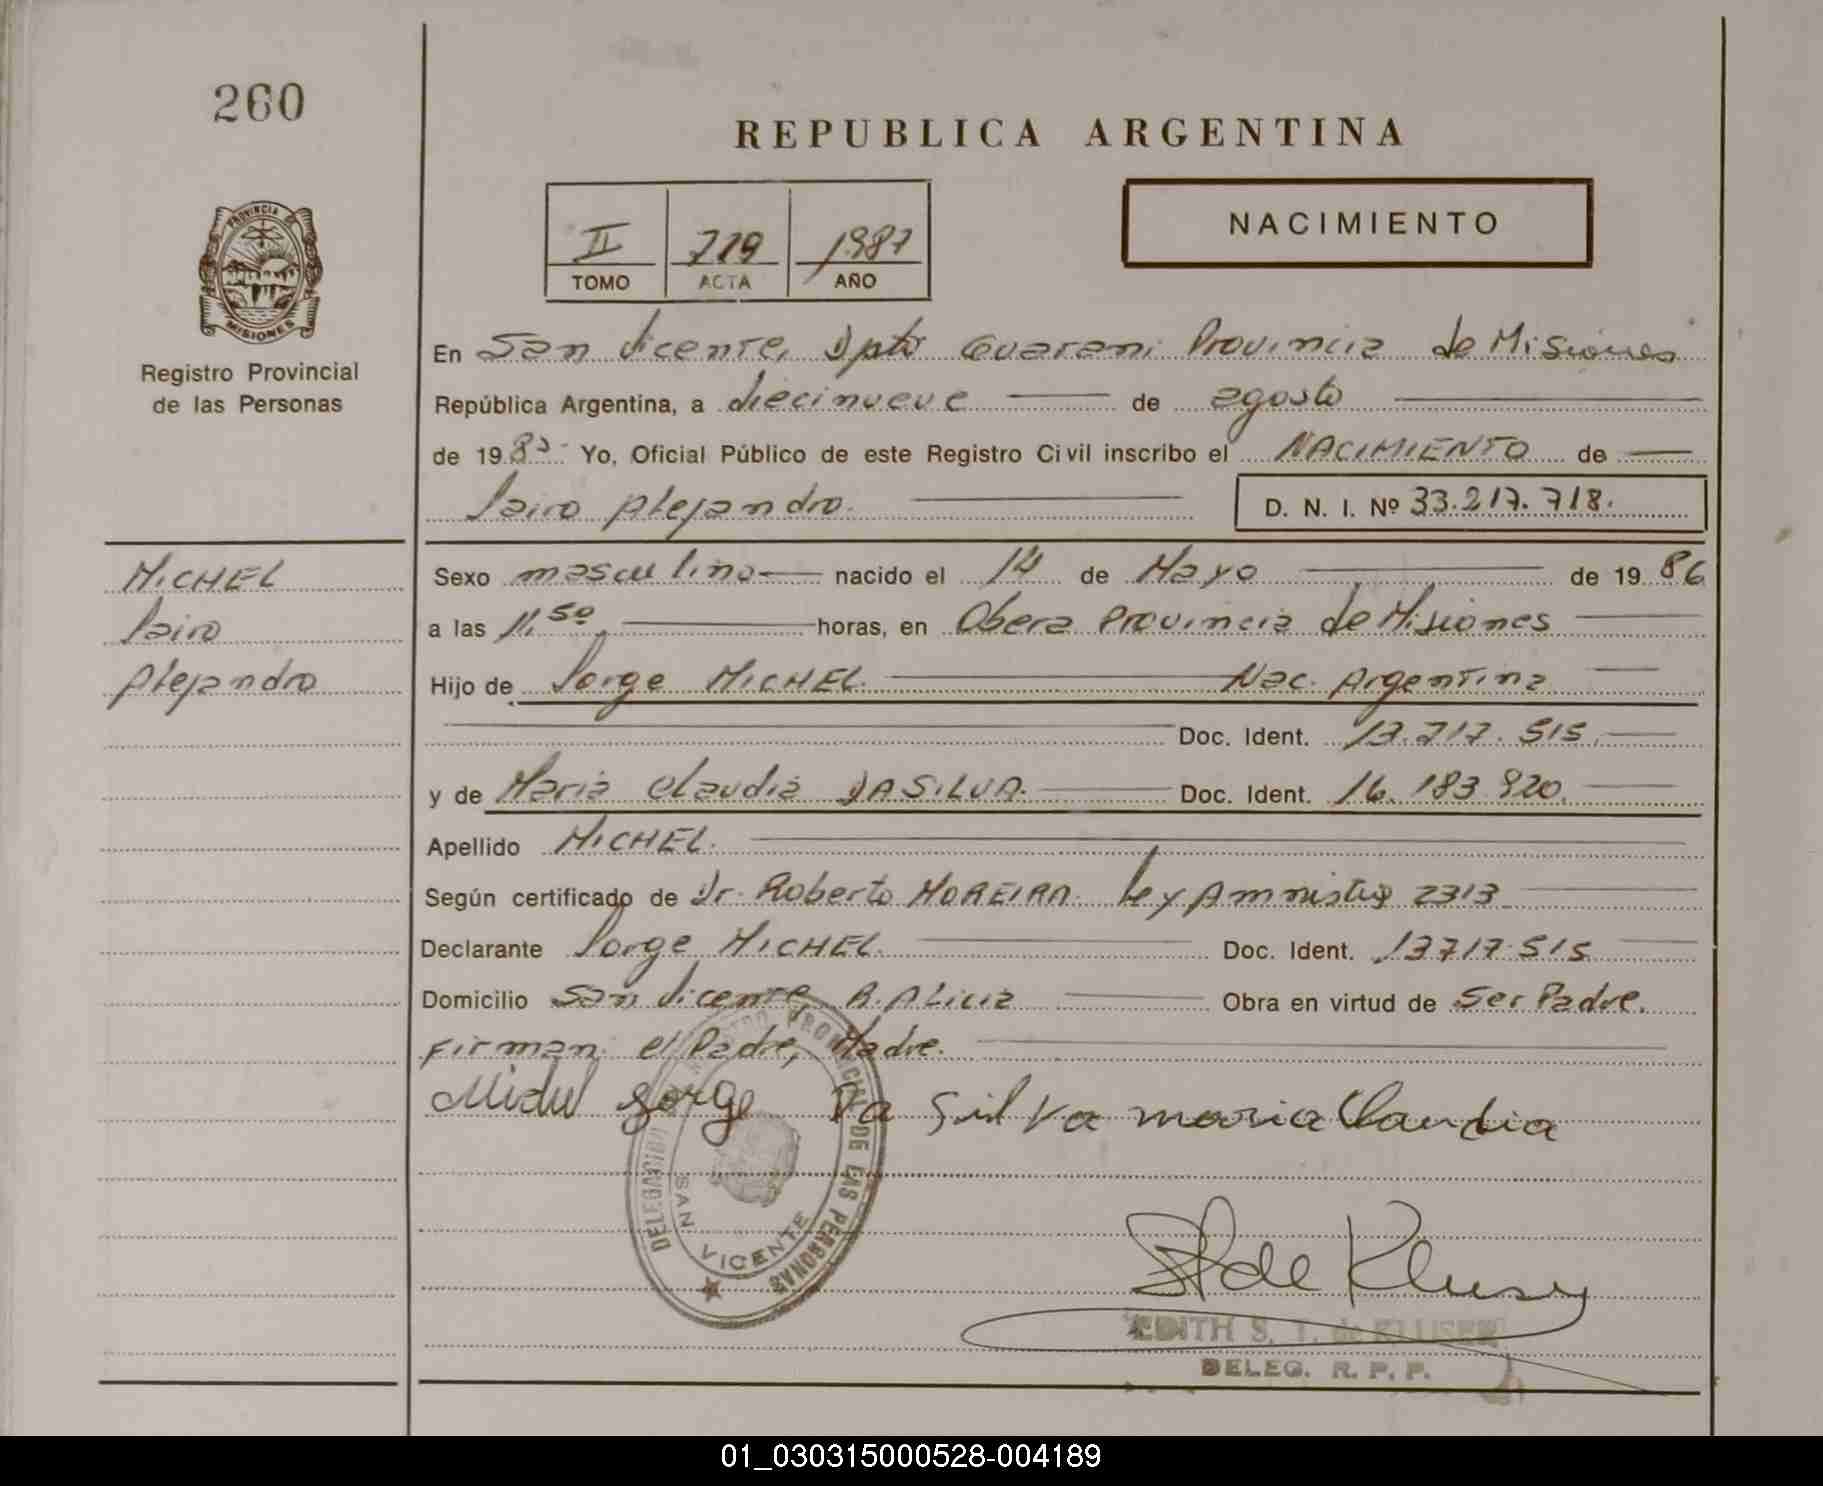 260
REPUBLICA ARGENTINA
NACIMIENTO
II 719 1987
TOMO ACTA AÑO
PROVINCIA DE MISIONES
Registro Provincial
de las Personas
En San Vicente, Dpto Guarani Provincia de Misiones
República Argentina, a diecinueve de agosto
de 1987 Yo, Oficial Público de este Registro Civil inscribo el NACIMIENTO de
Jairo Alejandro. D. N. I. Nº 33.217.718.
MICHEL
Jairo
Alejandro
Sexo masculino nacido el 14 de Mayo de 1986
a las 11,50 horas, en Obera Provincia de Misiones
Hijo de Jorge MICHEL Nac. Argentina
Doc. Ident. 13.717.515.
y de Maria Claudia DASILVA. Doc. Ident. 16.183.920.
Apellido MICHEL.
Según certificado de Dr. Roberto MOREIRA. Ley Amnistia 2313
Declarante Jorge MICHEL. Doc. Ident. 13717515
Domicilio San Vicente, A. Alicia Obra en virtud de Ser Padre.
Firman el Padre, Madre.
Michel Jorge Da Silva maria Claudia
DELEGACION REGISTRO PROVINCIAL DE LAS PERSONAS
SAN VICENTE
de Kluser
EDITH S. T. de KLUSER
DELEG. R. P. P.
01_030315000528-004189